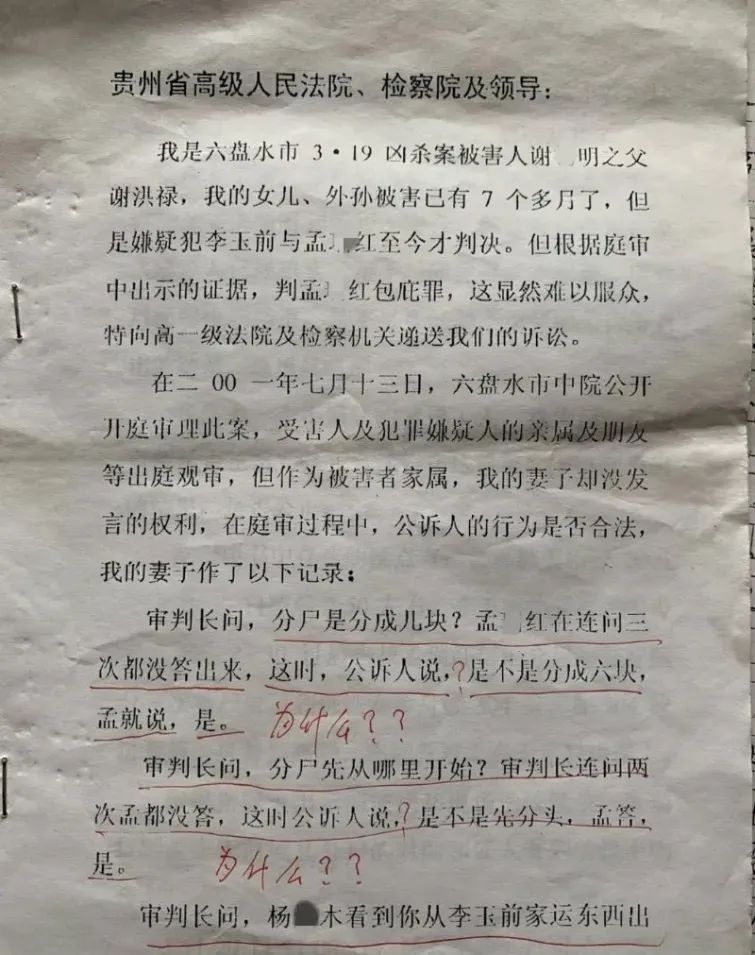 贵州省高级人民法院、检察院及领导：
我是六盘水市 3·19 凶杀案被害人谢 明之父
谢洪禄，我的女儿、外孙被害已有 7 个多月了，但
是嫌疑犯李玉前与孟 红至今才判决。但根据庭审
中出示的证据，判孟 红包庇罪，这显然难以服众，
特向高一级法院及检察机关递送我们的诉讼。
在二 00 一年七月十三日，六盘水市中院公开
开庭审理此案，受害人及犯罪嫌疑人的亲属及朋友
等出庭观审，但作为被害者家属，我的妻子却没发
言的权利，在庭审过程中，公诉人的行为是否合法，
我的妻子作了以下记录：
审判长问，分尸是分成几块？孟 红在连问三
次都没答出来，这时，公诉人说，？是不是分成六块，
孟就说，是。 为什么？？
审判长问，分尸先从哪里开始？审判长连问两
次孟都没答，这时公诉人说，？是不是先分头，孟答，
是。 为什么？？
审判长问，杨 木看到你从李玉前家运东西出